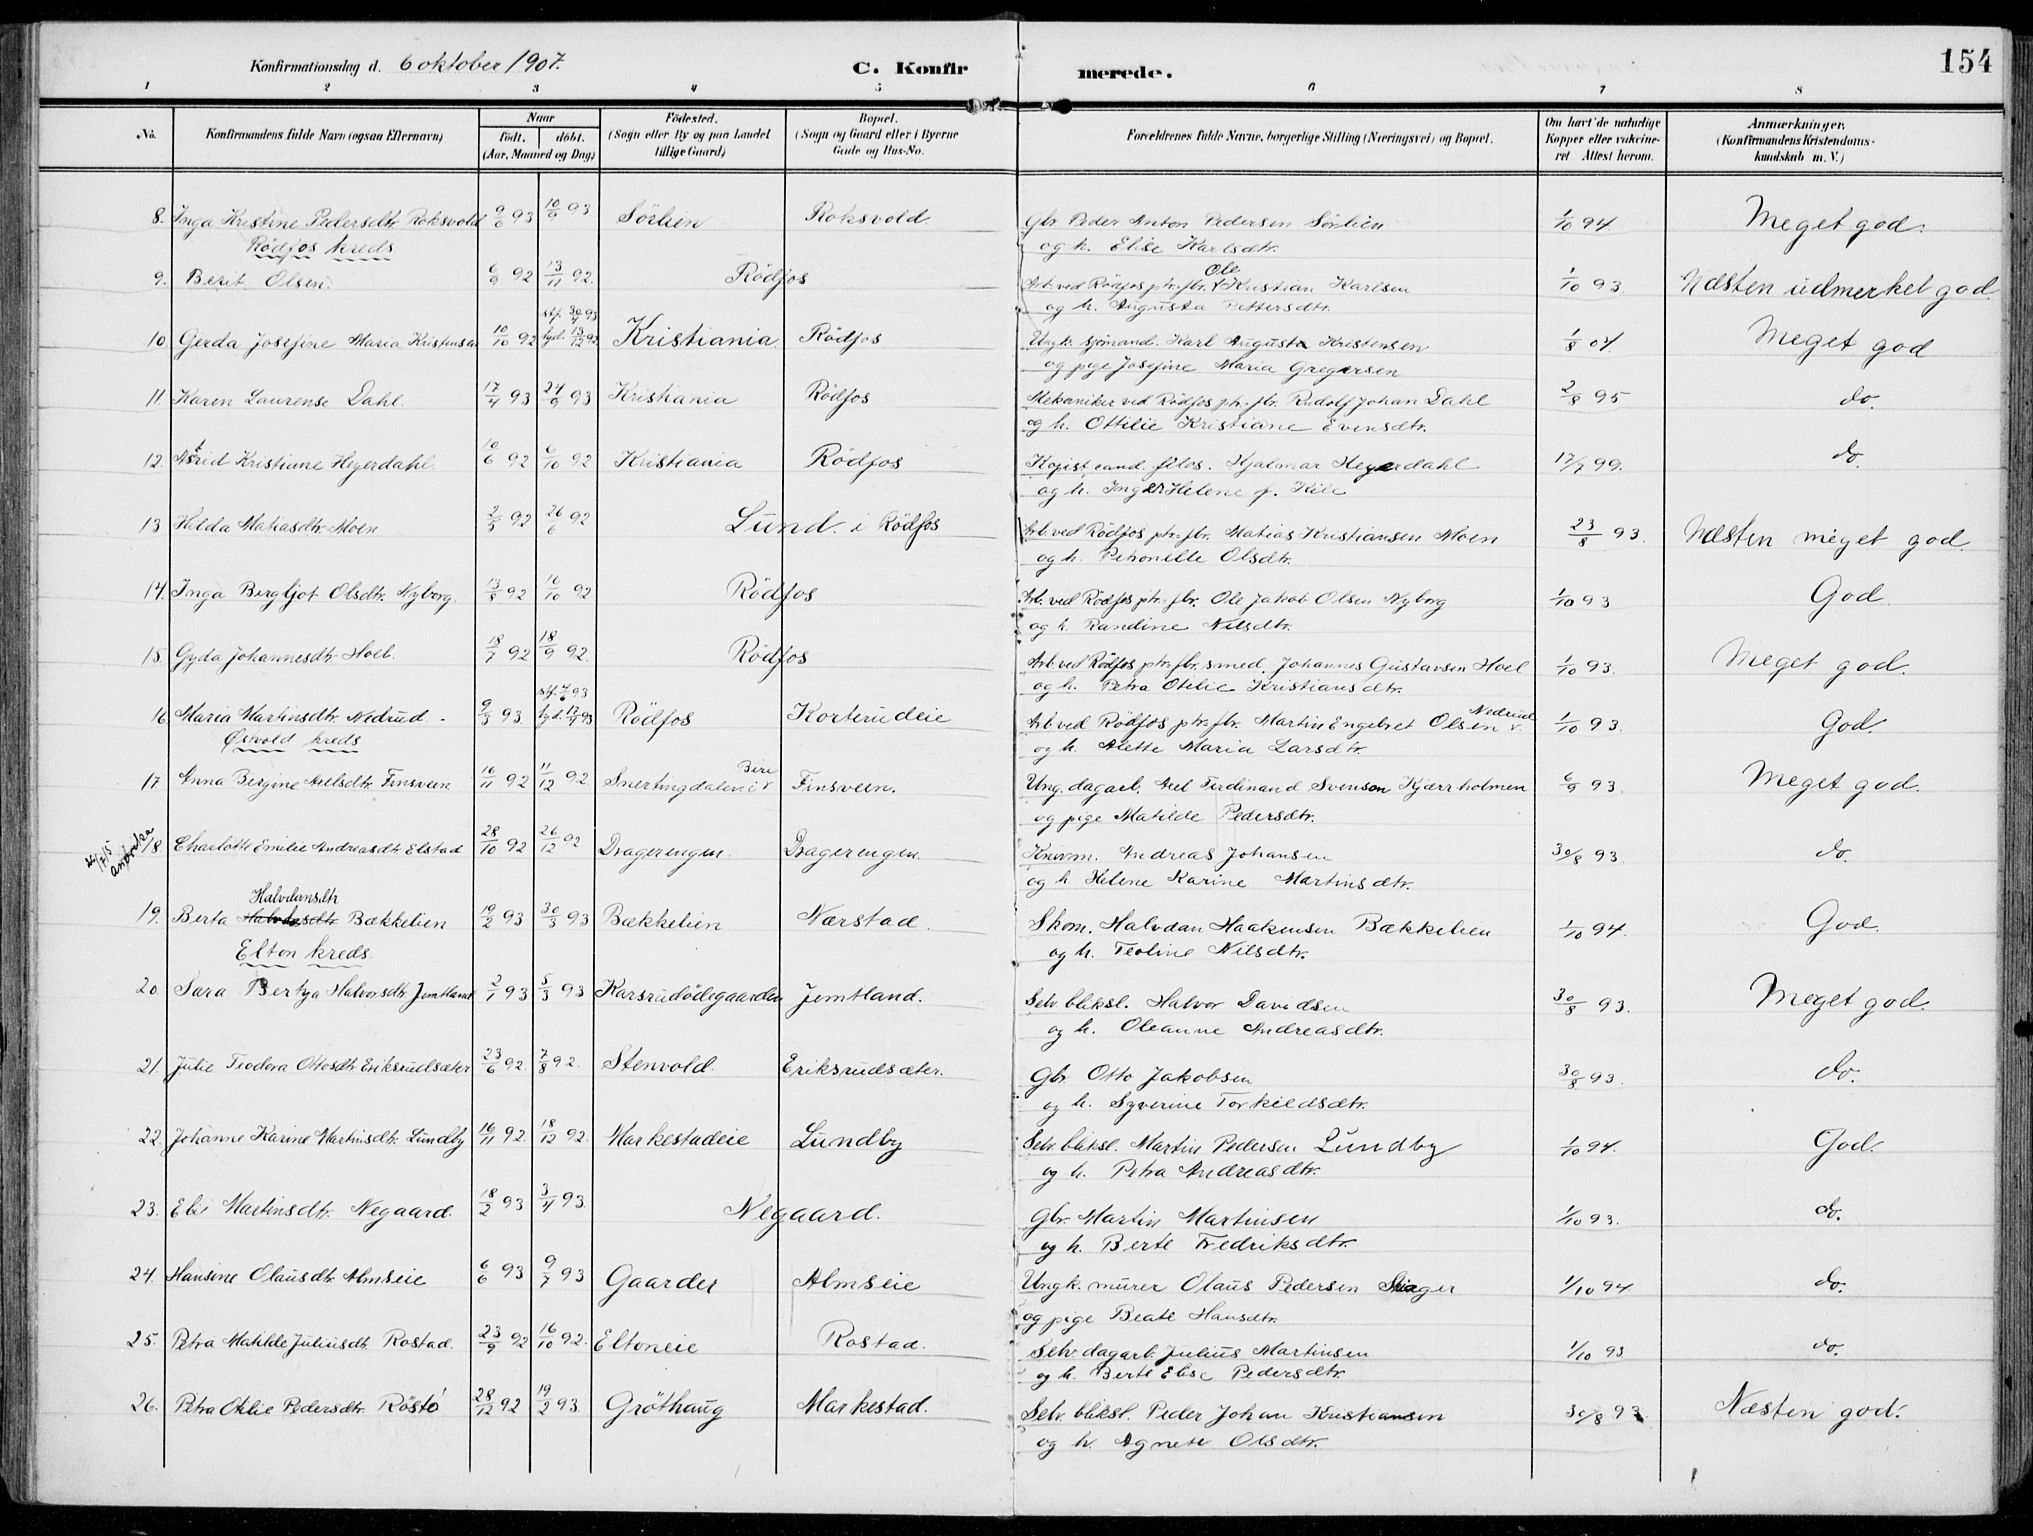 Konfirmationsdag d. 6 oktober 1907.
C. Konfirmerede.
154
1 2 3 4 5 6 7 8
No. Konfirmandens fulde Navn (ogsaa Efternavn) Naar født. døbt. (Aar, Maaned og Dag) Fødested. (Sogn eller By og paa Landet tillige Gaard) Bopæl. (Sogn og Gaard eller i Byerne Gade og Hus-No. Forældrenes fulde Navne, borgerlige Stilling (Næringsvei) og Bopæl. Om havt de naturlige Kopper eller vakcineret Attest herom. Anmærkninger. (Konfirmandens Kristendomskundskab m. V.)
8. Inga Kristine Pedersdtr. Roksvold 9/6 93 10/9 93 Sörlien Roksvold. Gbr. Peder Anton Pedersen Sörlien 1/10 94 Meget god.
Rödfos kreds
og h. Elise Karlsdtr.
9. Berit Olsen. 6/9 92 13/11 92. Rödfos Arb. ved Rödfos ptr. fbr. Ole Kristian Karlsen 1/10 93 Næsten udmerket god.
og h. Augusta Pettersdtr.
10. Gerda Josefine Maria Kristensen 10/10 92 stf. 30/4 93 hjd. 13/12 92 Kristiania. Rödfos Ungk. sjömand. Karl August Kristensen 1/8 07. Meget god
og pige Josefine Maria Gregersen
11. Karen Laurense Dahl. 17/4 93 24/9 93 Kristiania Rödfos Mekaniker ved Rödfos ptr. fbr. Rudolf Johan Dahl 2/8 95 do.
og h. Ottilie Kristiane Evensdtr.
12. Astrid Kristiane Heyerdahl. 10/6 92 6/10 92 Kristiania Rödfos Kopist cand. filos. Hjalmar Heyerdahl 17/7 99. do.
og h. Inger Helene f. Kile
13 Hilda Matiasdtr. Moen 2/5 92 26/6 92 Lund i Rödfos Arb. ved Rödfos ptr. fbr. Matias Kristiansen Moen 23/8 93. Næsten meget god.
og h. Petronelle Olsdtr.
14. Inga Bergljot Olsdtr. Nyborg. 13/8 92 16/10 92 Rödfos Arb. ved Rödfos ptr. fbr. Ole Jakob Olsen Nyborg 1/10 93 God
og h. Randine Nilsdtr.
15. Gyda Johannesdtr. Hoel. 18/7 92 18/9 92. Rödfos Arb. ved Rödfos ptr. fbr. smed. Johannes Gustavsen Hoel 1/10 93. Meget god.
og h. Petra Otilie Kristiansdtr.
16 Maria Martinsdtr. Nedrud 9/3 93. stf. 4/6 93 hjd. 17/4 93 Rödfos Korterudeie Arb. ved Rödfos ptr. fbr. Martin Engebret Olsen Nedrud 1/10 93. God.
Østvold kreds
og h. Alette Maria Larsdtr.
17. Anna Bergine Axelsdtr. Finsveen 16/11 92 11/12 92 Snertingdalen i Biri Finsveen. Ung. dagarb. Axel Ferdinand Svenson Kjærrholmen 6/9 93. Meget god.
og pige Matilde Pedersdtr.
18. Charlotte Emilie Andreasdtr. Elstad 28/10 92 26/12 92 Dragerengen. Dragerengen. Andreas Johansen 30/8 93. do.
og h. Helene Karine Martinsdtr.
19. Berta Halvdansdtr Bækkelien 19/2 93 30/3 93 Bækkelien Nærstad. Skom. Halvdan Haakensen Bækkelien 1/10 94. God.
Elton kreds.
og h. Teoline Nilsdtr.
20. Sara Bertya Halvorsdtr. Jemtland 2/1 93 5/3 93 Karsrudödegaarden Jemtland. Selv. bliksl. Halvor Davidsen 30/8 93. Meget god.
og h. Oleanne Andreasdtr.
21. Julie Teodora Ottosdtr. Eriksrudsæter 23/6 92. 7/8 92. Stenvold. Eriksrudsæter. Gbr. Otto Jakobsen 30/8 93. do.
og h. Syverine Torkildsdtr.
22. Johanne Karine Martinsdtr. Lundby 16/11 92. 18/12 92. Markestadeie Lundby Selv. bliksl. Martin Pedersen Lundby 1/10 94. God.
og h. Petra Andreasdtr.
23. Elie Martinsdtr. Negaard. 18/2 93 3/4 93. Negaard. Gbr. Martin Martinsen 1/10 93. do.
og h. Berte Fredriksdtr.
24. Hansine Olausdtr. Almseie 6/6 93 9/7 93 Gaarder Almseie Ungk. murer Olaus Pedersen 1/10 94. do.
og pige Beate Hansdtr.
25. Petra Matilde Juliusdtr. Rostad. 23/9 92 16/10 92. Eltoneie Rostad. Selv. dagarb. Julius Martinsen 1/10 93 do.
og h. Berte Elise Pedersdtr.
26. Petra Otilie Pedersdtr. Röstö 28/12 92 19/2 93. Gröthaug Markestad. Selv. bliksl. Peder Johan Kristiansen 30/8 93. Næsten god.
og h. Agnete Olsdtr.